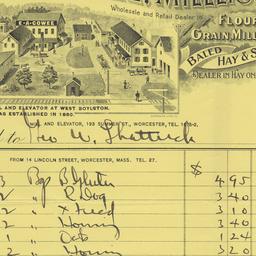 E. A. COWEE
Wholesale and Retail Dealer in
FLOUR
GRAIN MILL
BALED HAY & S
DEALER IN HAY ON
L AND ELEVATOR AT WEST BOYLSTON
AS ESTABLISHED IN 1880.
AND ELEVATOR, 193 SUMMER ST., WORCESTER, TEL.
to Geo W. Shattuck
FROM 14 LINCOLN STREET, WORCESTER, MASS. TEL. 27.
$
3 Bg B Gluten 4 95
2 " P. Dog 3 40
2 " X Feed 3 10
2 " Hominy 3 40
1 " Oats 1 24
2 " Hominy 3 20